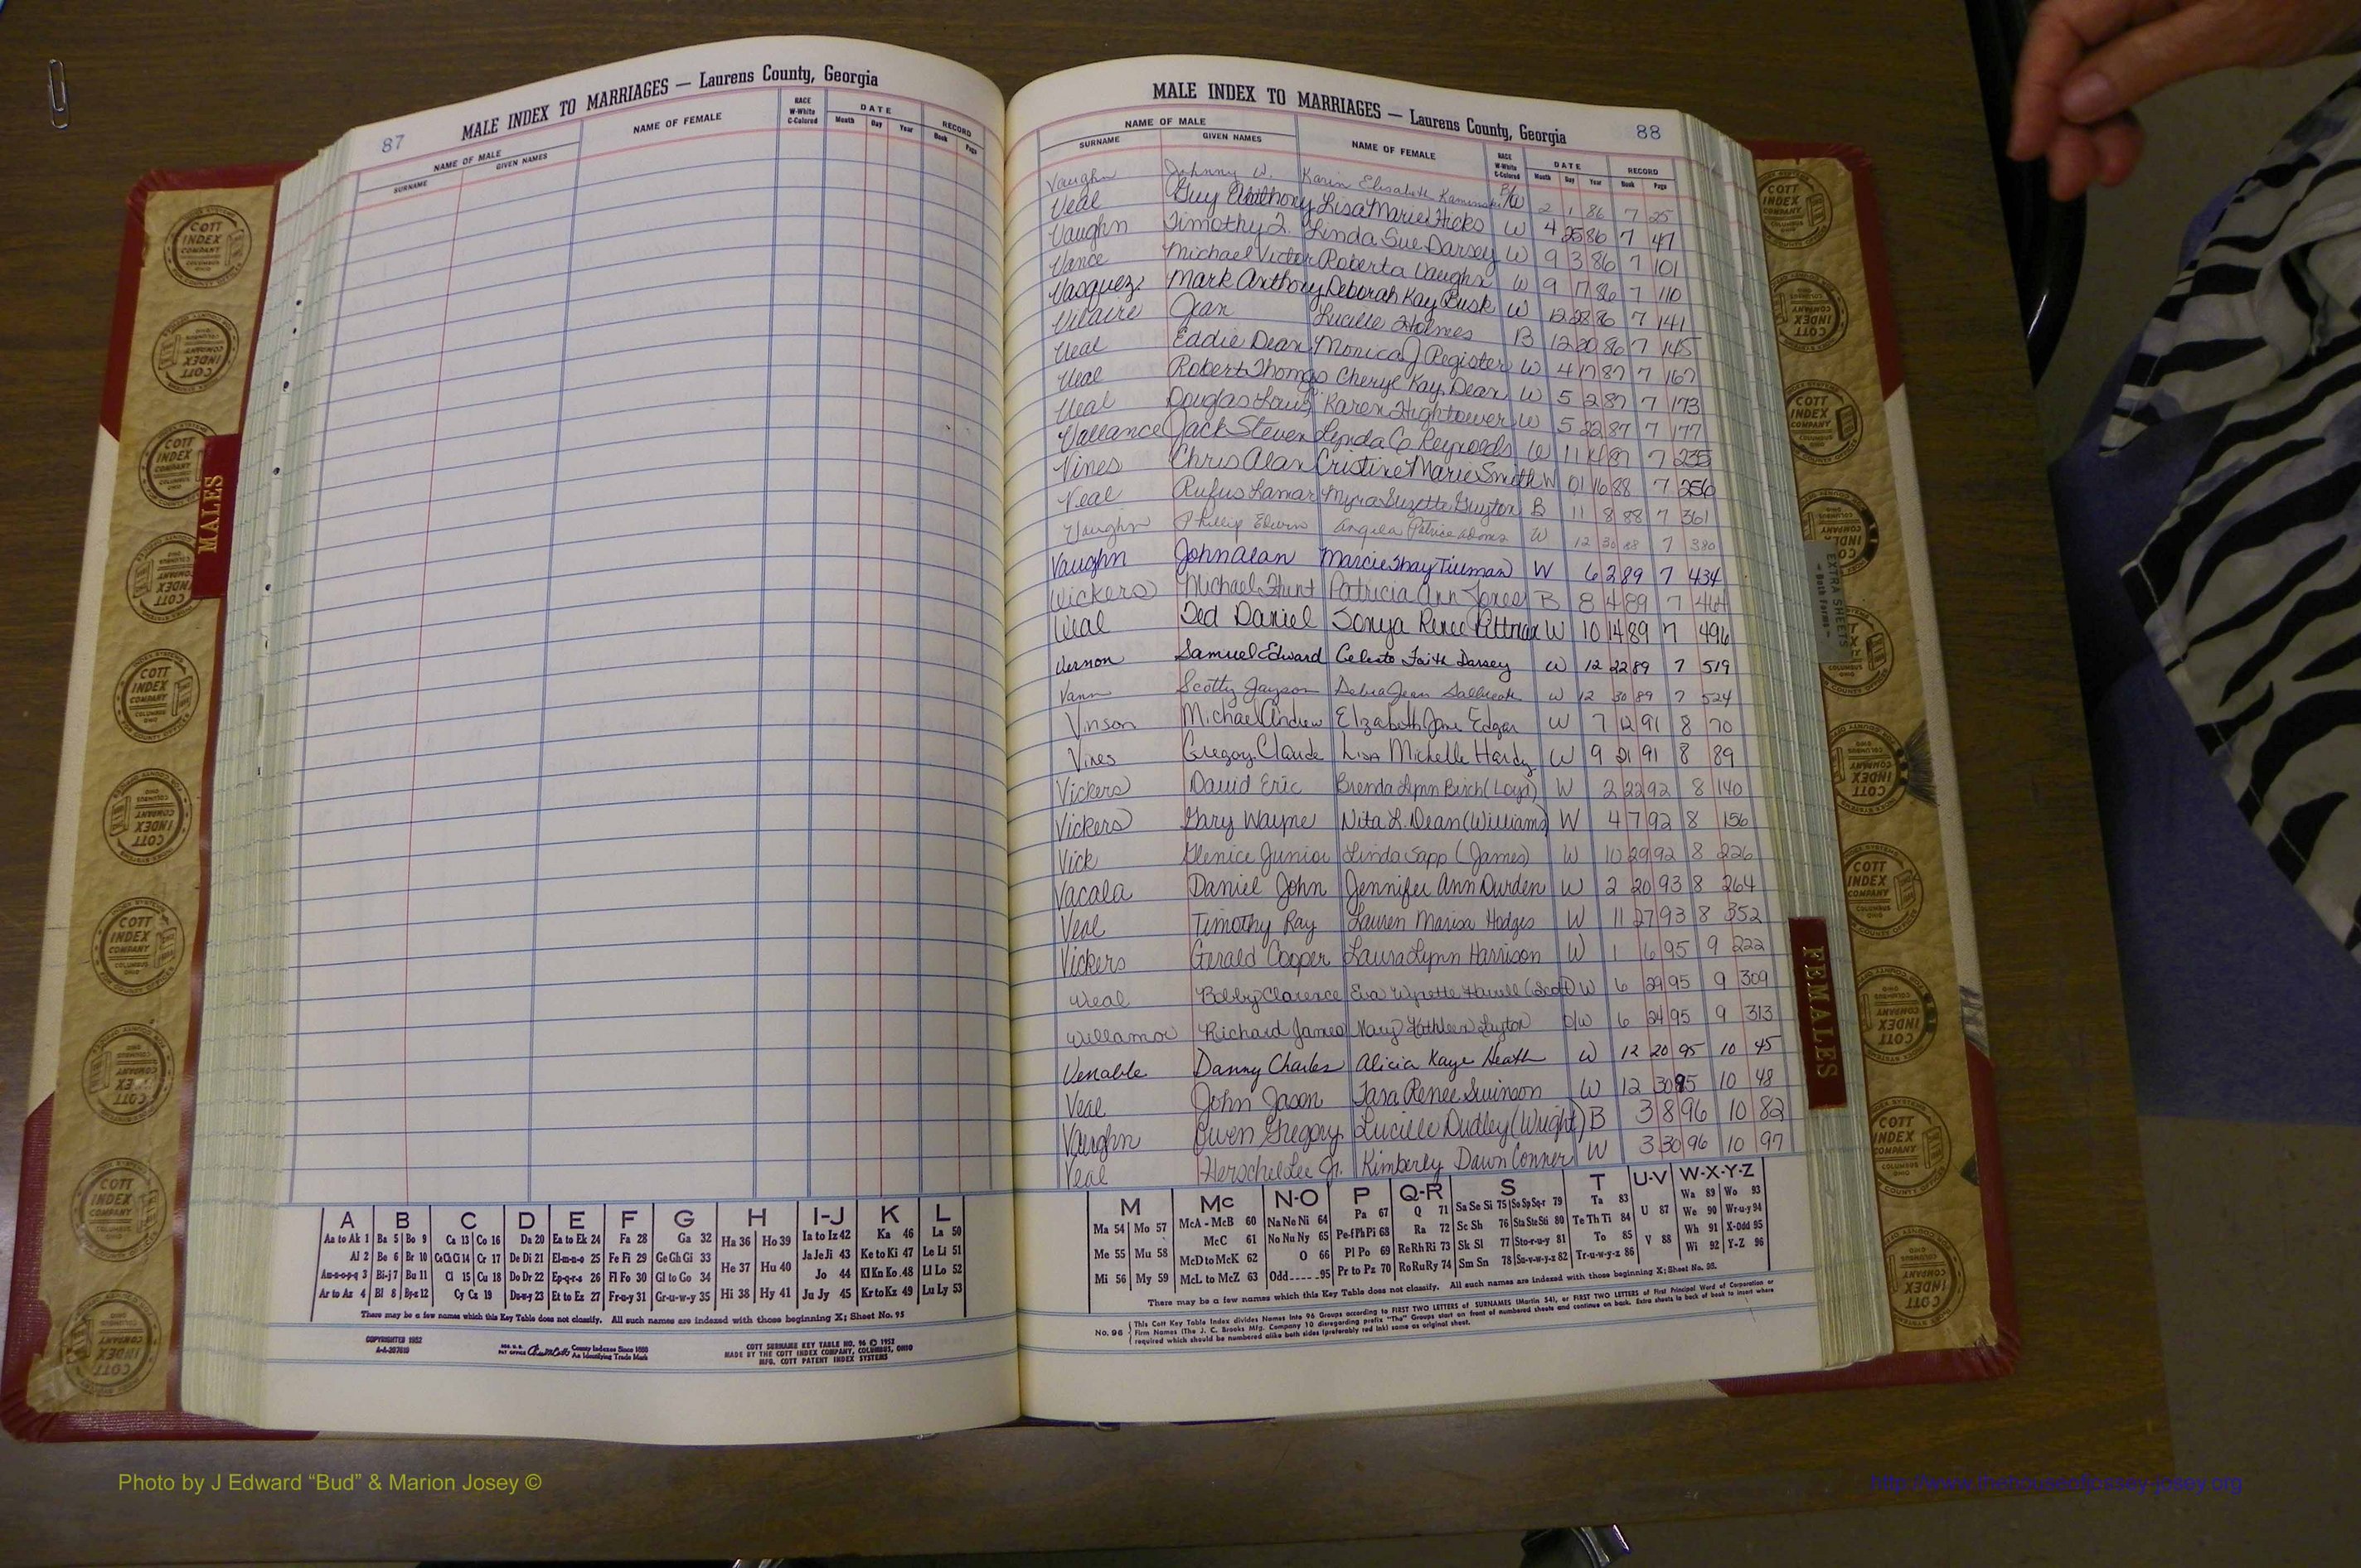 MALE INDEX TO MARRIAGES — Laurens County, Georgia
87
NAME OF MALE
SURNAME GIVEN NAMES
NAME OF FEMALE
RACE W-White C-Colored
DATE
Month Day Year
RECORD
Book Page
MALE INDEX TO MARRIAGES — Laurens County, Georgia
88
NAME OF MALE
SURNAME GIVEN NAMES
NAME OF FEMALE
RACE W-White C-Colored
DATE
Month Day Year
RECORD
Book Page
Vaughn Johnny W. Karin Elisabeth Kaminski B/W 2 1 86 7 25
Veal Guy Anthony Lisa Marie Hicks W 4 25 86 7 47
Vaughn Timothy L. Linda Sue Darsey W 9 3 86 7 101
Vance Michael Victor Roberta Vaughn W 9 17 86 7 110
Vasquez Mark Anthony Deborah Kay Busk W 12 28 86 7 141
Vilaire Jean Lucille Holmes B 12 20 86 7 145
Veal Eddie Dean Monica J Register W 4 17 87 7 167
Veal Robert Thomas Cheryl Kay Dean W 5 2 87 7 173
Veal Douglas Louis Karen Hightower W 5 22 87 7 177
Vallance Jack Steven Lynda C. Reynolds W 11 87 7 235
Vines Chris Alan Cristine Marie Smith W 01 16 88 7 256
Veal Rufus Lamar Myra Suzette Guyton B 11 8 88 7 361
Vaughn Phillip Edwin Angela Patrice Adams W 12 30 88 7 380
Vaughn John Alan Marcie Shay Tillman W 6 2 89 7 434
Vickers Michael Hunt Patricia Ann Jones B 8 4 89 7 464
Veal Ted Daniel Sonya Renee Pittman W 10 14 89 7 496
Vernon Samuel Edward Celeste Faith Darsey W 12 22 89 7 519
Vann Scotty Jayson Debra Jean W 12 30 89 7 524
Vinson Michael Andrew Elizabeth Jane Edgar W 7 12 91 8 70
Vines Gregory Claude Lisa Michelle Hardy W 9 21 91 8 89
Vickers David Eric Brenda Lynn Birch (Loyd) W 2 22 92 8 140
Vickers Gary Wayne Nita L. Dean (Williams) W 4 7 92 8 156
Vick Glenice Junior Linda Sapp (James) W 10 29 92 8 226
Vacala Daniel John Jennifer Ann Durden W 2 20 93 8 264
Veal Timothy Ray Lauren Marisa Hodges W 11 27 93 8 352
Vickers Gerald Cooper Laura Lynn Harrison W 1 6 95 9 222
Veal Bobby Clarence Eva Wynette (Scott) W 6 29 95 9 309
Villamor Richard James Mary Kathleen Layton O/W 6 24 95 9 313
Venable Danny Charles Alicia Kaye Heath W 12 20 95 10 45
Veal John Jason Tara Renee Swinson W 12 30 95 10 48
Vaughn Owen Gregory Lucille Dudley (Wright) B 3 8 96 10 82
Veal Herschel Lee Jr. Kimberly Dawn Conner W 3 30 96 10 97
A B C D E F G H I-J K L
Aa to Ak 1 Ba 5 Bo 9 Ca 13 Co 16 Da 20 Ea to Ek 24 Fa 28 Ga 32 Ha 36 Ho 39 Ia to Iz 42 Ka 46 La 50
Al 2 Be 6 Br 10 Ce Ch Ci 14 Cr 17 De Di 21 El-m-n-o 25 Fe Fi 29 Ge Gh Gi 33 He 37 Hu 40 Ja Je Ji 43 Ke to Ki 47 Le Li 51
Am-n-o-p-q 3 Bi-j 7 Bu 11 Cl 15 Cu 18 Do Dr 22 Ep-q-r-s 26 Fl Fo 30 Gl to Go 34 Jo 44 Kl Kn Ko 48 Ll Lo 52
Ar to Az 4 Bl 8 By-z 12 Cy Cz 19 Du-w-y 23 Et to Ez 27 Fr-u-y 31 Gr-u-w-y 35 Hi 38 Hy 41 Ju Jy 45 Kr to Kz 49 Lu Ly 53
There may be a few names which this Key Table does not classify. All such names are indexed with those beginning X; Sheet No. 95
COPYRIGHTED 1952
County Indexes Since 1888
An Identifying Trade Mark
COTT SURNAME KEY TABLE NO. 96 © 1952
MADE BY THE COTT INDEX COMPANY, COLUMBUS, OHIO
MFG. COTT PATENT INDEX SYSTEMS
M Mc N-O P Q-R S T U-V W-X-Y-Z
Ma 54 Mo 57 McA - McB 60 Na Ne Ni 64 Pa 67 Q 71 Sa Se Si 75 So Sp Sq-r 79 Ta 83 U 87 Wa 89 Wo 93
Me 55 Mu 58 McC 61 No Nu Ny 65 Pe-f Ph Pi 68 Ra 72 Sc Sh 76 Sta Ste Sti 80 Te Th Ti 84 We 90 Wr-u-y 94
McD to McK 62 O 66 Pl Po 69 Re Rh Ri 73 Sk Sl 77 Sto-r-u-y 81 To 85 V 88 Wh 91 X-Odd 95
Mi 56 My 59 McL to McZ 63 Odd 95 Pr to Pz 70 Ro Ru Ry 74 Sm Sn 78 Su-v-w-y-z 82 Tr-u-w-y-z 86 Wi 92 Y-Z 96
There may be a few names which this Key Table does not classify. All such names are indexed with those beginning X; Sheet No. 95.
No. 96 This Cott Key Table Index divides Names into 96 Groups according to FIRST TWO LETTERS of SURNAMES (Martin 54), or FIRST TWO LETTERS of First Principal Word of Corporation or
Firm Names (The J. C. Brooks Mfg. Company 10 disregarding prefix "The" Groups start on front of numbered sheets and continue on back. Extra sheets in back of book to insert where
required which should be numbered alike both sides (preferably red ink) same as original sheet.
MALES
FEMALES
EXTRA SHEETS
COTT INDEX COMPANY COLUMBUS OHIO
Photo by J Edward “Bud” & Marion Josey ©
http://www.thehouseofjossey-josey.org